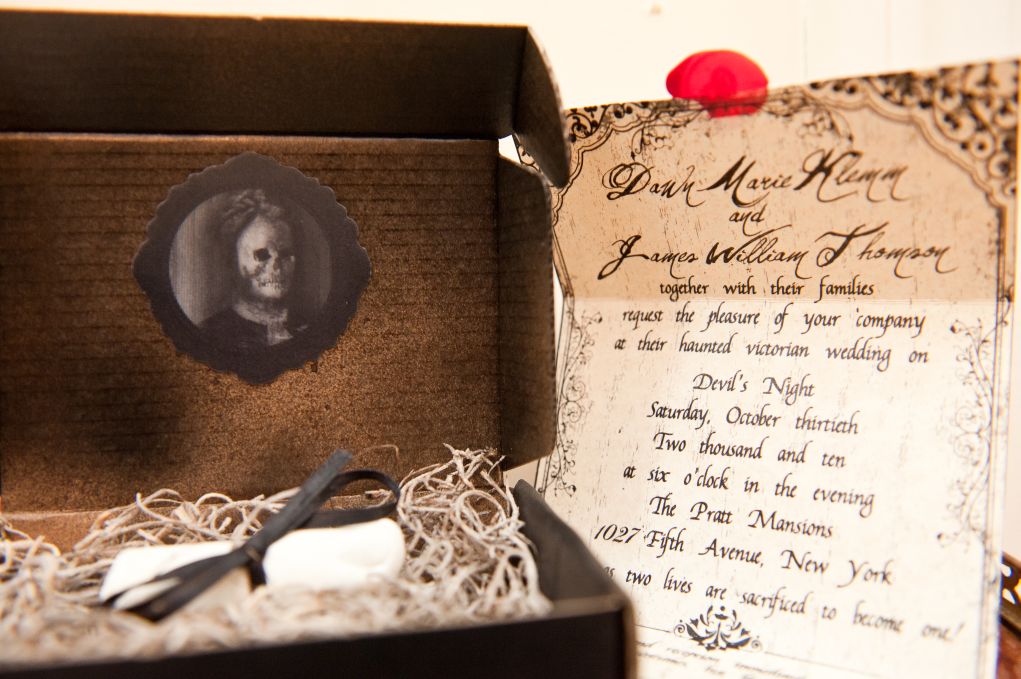 Dawn Marie Klemm
and
James William Thomson
together with their families
request the pleasure of your company
at their haunted victorian wedding on
Devil's Night
Saturday, October thirtieth
Two thousand and ten
at six o'clock in the evening
The Pratt Mansions
1027 Fifth Avenue, New York
as two lives are sacrificed to become one!